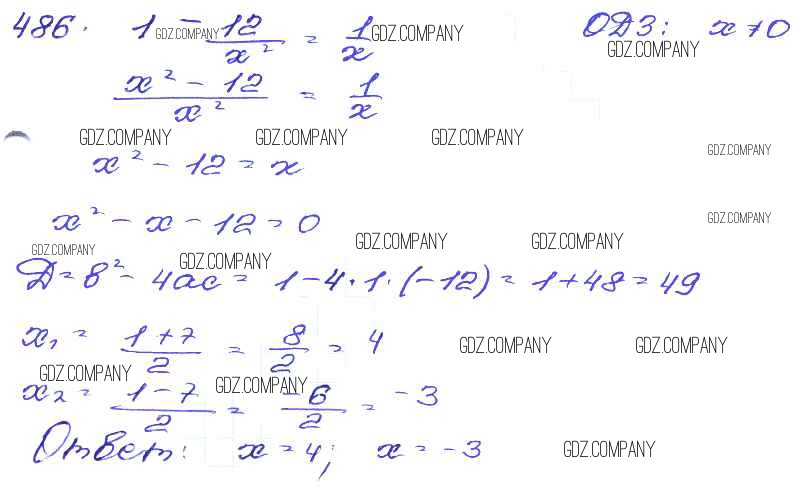 486. 1 - 12/x² = 1/x ОДЗ: x ≠ 0
GDZ.COMPANY GDZ.COMPANY GDZ.COMPANY
(x² - 12)/x² = 1/x
GDZ.COMPANY GDZ.COMPANY GDZ.COMPANY GDZ.COMPANY
x² - 12 = x
x² - x - 12 = 0 GDZ.COMPANY
GDZ.COMPANY GDZ.COMPANY GDZ.COMPANY GDZ.COMPANY
Д = в² - 4ac = 1 - 4 · 1 · (-12) = 1 + 48 = 49
x₁ = (1 + 7)/2 = 8/2 = 4 GDZ.COMPANY GDZ.COMPANY
GDZ.COMPANY GDZ.COMPANY
x₂ = (1 - 7)/2 = -6/2 = -3
Ответ: x = 4; x = -3 GDZ.COMPANY